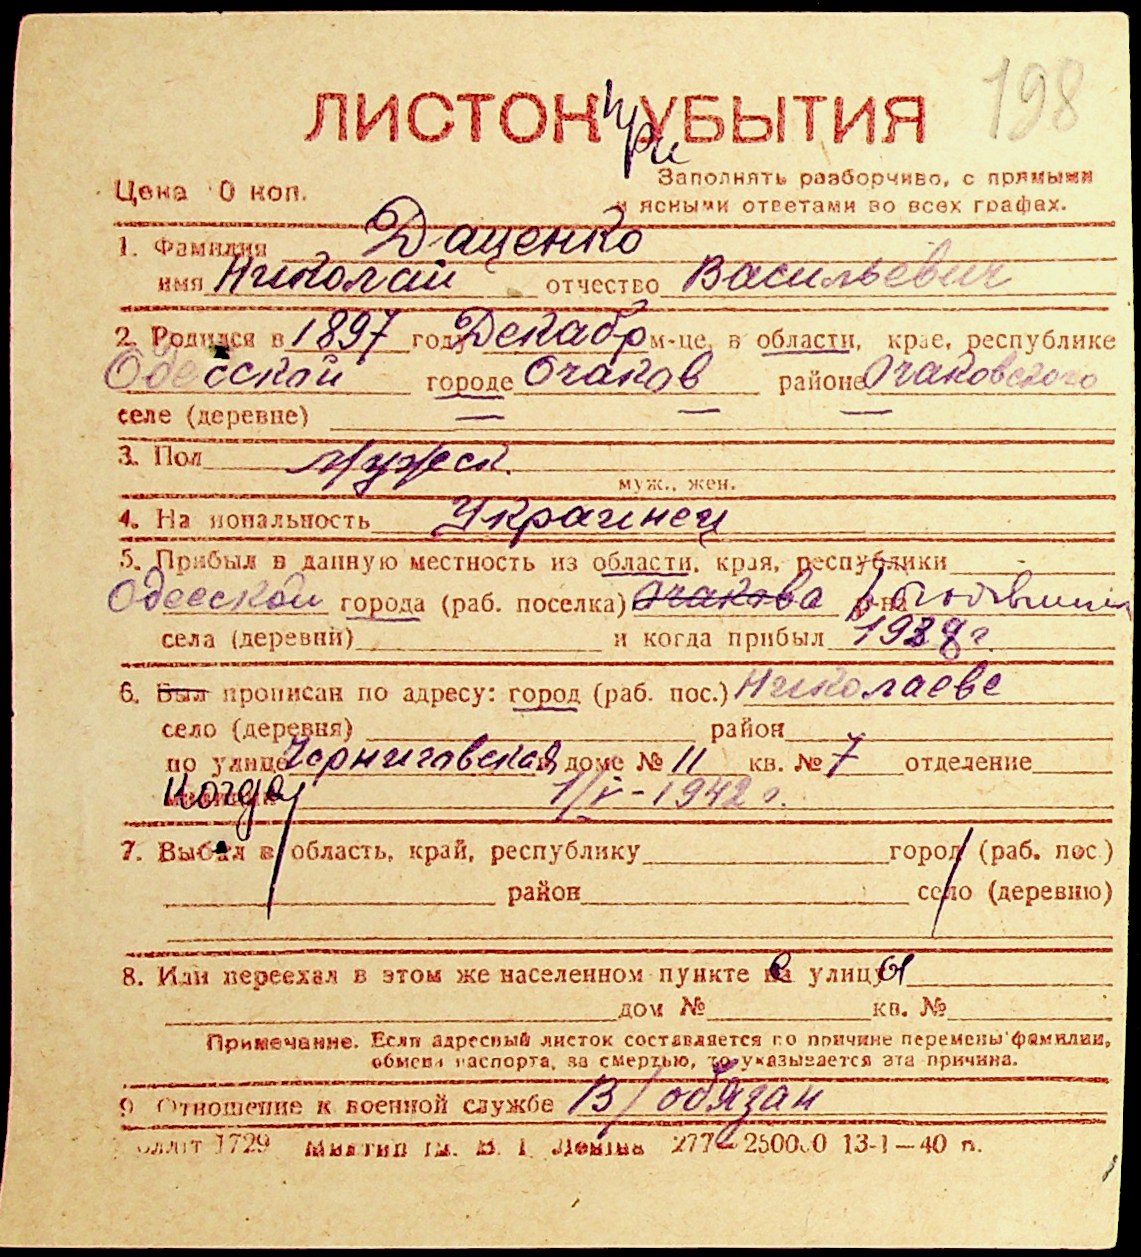 198
ЛИСТОК при УБЫТИЯ
Цена 10 коп.
Заполнять разборчиво, с прямыми
и ясными ответами во всех графах.
1. Фамилия Даценко
имя Николай отчество Васильевич
2. Родился в 1897 году Декабр м-це, в области, крае, республике
Одесской городе Очаков районе Очаковского
селе (деревне) — — —
3. Пол мужск.
муж., жен.
4. Национальность Украинец
5. Прибыл в данную местность из области, края, республики
Одесской города (раб. поселка) Очакова р-на
села (деревни) и когда прибыл 1938 г.
6. Был прописан по адресу: город (раб. пос.) Николаеве
село (деревня) район
по улице Черниговская, доме № 11 кв. № 7 отделение
милиции Когда 1/V-1942 г.
7. Выбыл в область, край, республику город (раб. пос.)
район село (деревню)
8. Или переехал в этом же населенном пункте на улицу
дом № кв. №
Примечание. Если адресный листок составляется по причине перемены фамилии,
обмена паспорта, за смертью, то указывается эта причина.
9. Отношение к военной службе В/обязан
1729 ім. В. І. Леніна 277—250000 13-I—40 п.